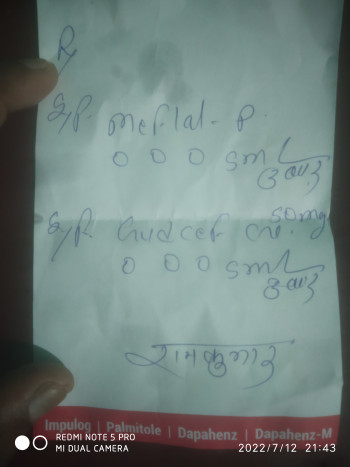 Rx
Syp. Meftal-P.
0 0 0 5ml
3 बार
Syp. Gudcef
50mg
0 0 0 5ml
बार
रामकुमार
Impulog | Palmitole | Dapahenz | Dapahenz-M
REDMI NOTE 5 PRO
MI DUAL CAMERA
2022/7/12 21:43